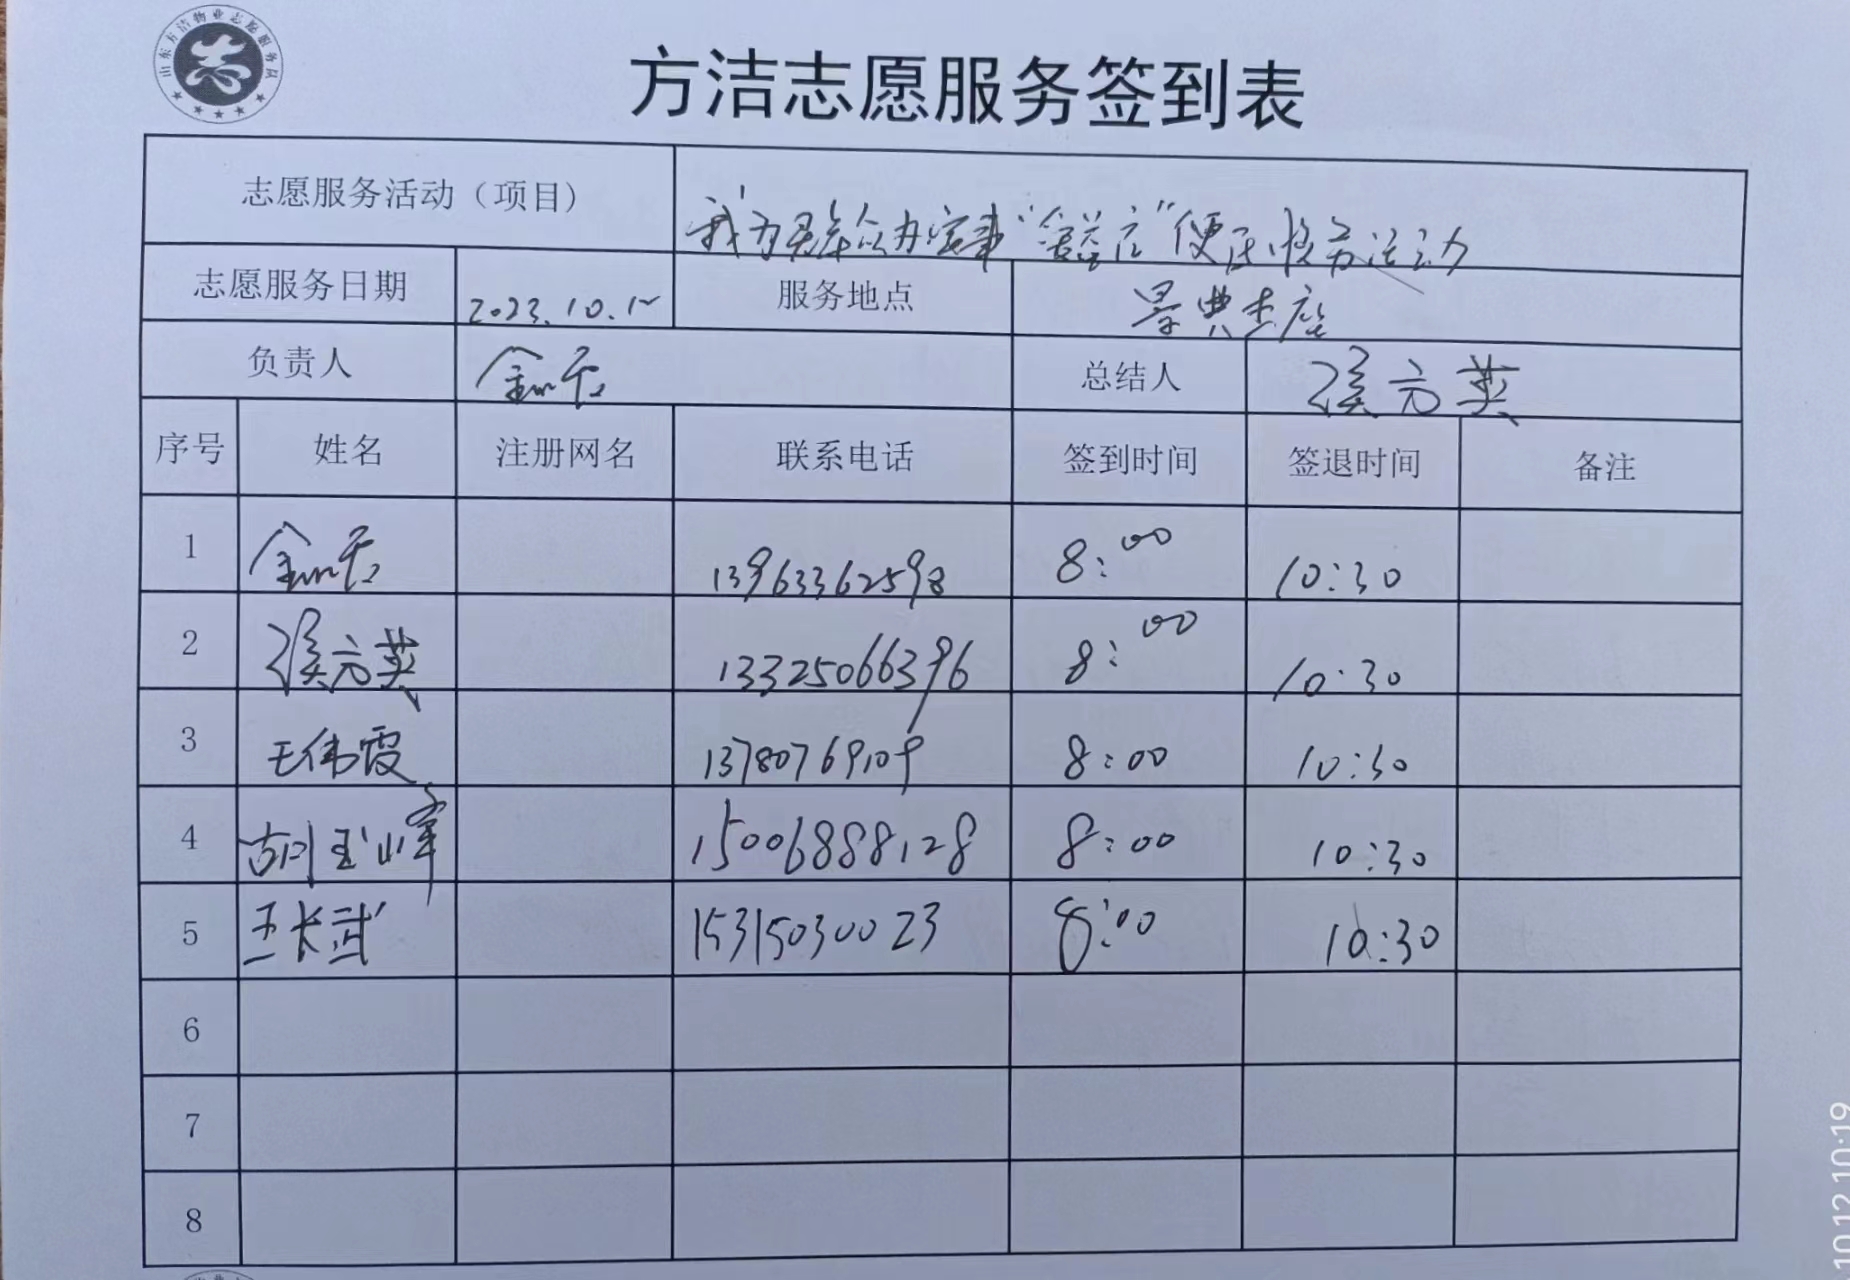 山东方洁物业志愿服务队
志
方洁志愿服务签到表
志愿服务活动（项目） 我为群众办实事“ ”便民服务活动
志愿服务日期 2023.10.1 服务地点
负责人 总结人 侯方英
序号 姓名 注册网名 联系电话 签到时间 签退时间 备注
1 13963362598 8:00 10:30
2 侯方英 13325066396 8:00 10:30
3 王伟霞 13780769109 8:00 10:30
4 胡玉峰 15006888128 8:00 10:30
5 王长武 15315030023 8:00 10:30
6
7
8
10.12 10:19